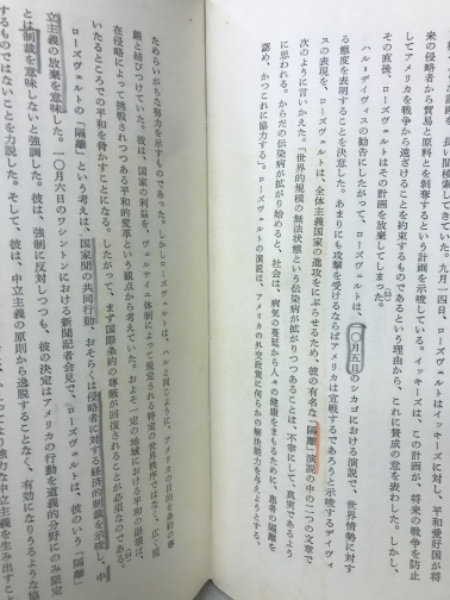 来の侵略者から貿易と原料とを剝奪するという計画を示唆している。イッキーズは、この計画が、将来の戦争を防止
してアメリカを戦争から遠ざけることを約束するものであるという理由から、これに賛成の意を表わした。しかし、
その直後、ローズヴェルトはその計画を放棄してしまった。
ハル＝デイヴィスの勧告にしたがって、ローズヴェルトは、一〇月五日のシカゴにおける演説で、世界情勢に対す
る態度を表明することを決意した。あまりにも攻撃を受けるならばアメリカは宣戦するであろうと示唆するデイヴィ
スの表現を、ローズヴェルトは、全体主義国家の進攻をにぶらせるため、彼の有名な「隔離」演説の中の二つの文章で
次のように言いかえた。「世界的規模の無法状態という伝染病が拡がりつつあることは、不幸にして、真実であるよう
に思われる。からだの伝染病が拡がり始めると、社会は、病気の蔓延から人々の健康をまもるために、患者の隔離を
認め、かつこれに協力する」。ローズヴェルトの演説は、アメリカの外交政策に何らかの解決能力を与えようとする、
ためらいがちな努力を示すものであった。しかしローズヴェルトは、ハルと同じように、アメリカの目的を条約の尊
厳と結びつけていた。彼は、国家の利益を、ヴェルサイユ体制によって展覧される特定の世界秩序ではなく、広く現
在侵略によって挑戦されつつある平和的変革という観点から考えていた。およそ一定の地域における平和の崩壊は、
いたるところでの平和を脅かすことになる。したがって、まず国際条約の尊厳が回復されることが必須なのである。
ローズヴェルトの「隔離」という考えは、国家間の共同行動、おそらくは侵略者に対する経済的制裁を示唆し、中
立主義の放棄を意味した。一〇月六日のワシントンにおける新聞記者会見で、ローズヴェルトは、彼のいう「隔離」
とは制裁を意味しないと強調した。彼は、強制に反対しつつも、彼の決定はアメリカの行動を道義的分野にのみ限定
するものではないことを力説した。そして、彼は、中立主義の原則から逸脱することなく、有効になりうるような協